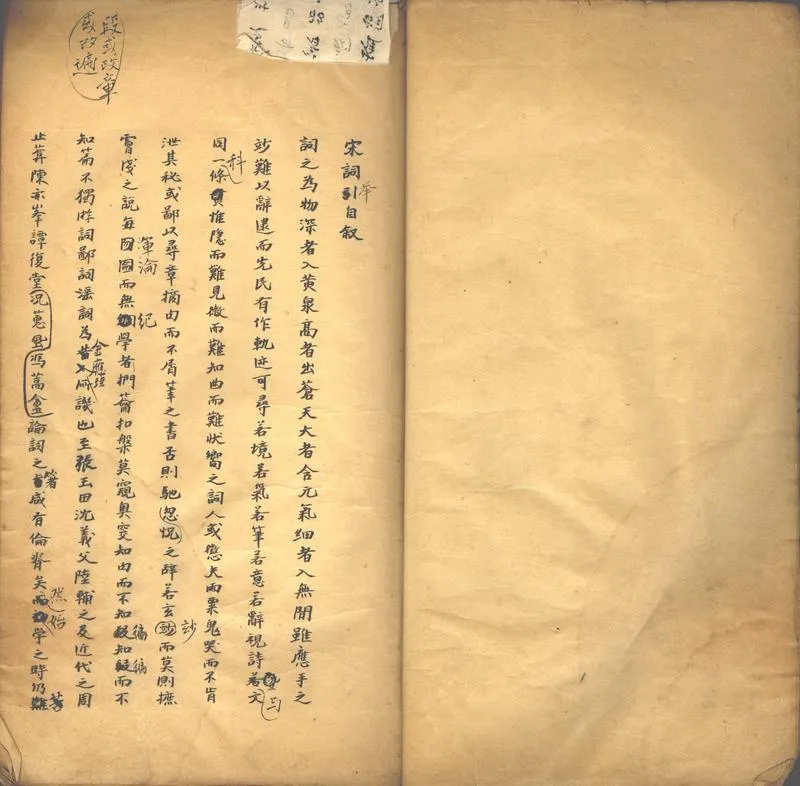 宋詞引自敘
舉
詞之為物深者入黃泉高者出蒼天大者含元氣細者入無閒雖應手之
妙難以辭逮而先民有作軌迹可尋若境若氣若筆若意若辭視詩若文
与
同一條貫惟隱而難見微而難知曲而難狀嚮之詞人或懲夫雨粟鬼哭而不肯
科
泄其秘或鄙以尋章摘句而不屑筆之書否則馳忽怳之辭若玄妙而莫則摭
妙
膚淺之說每囫圇而無紀學者捫籥扣槃莫窺奧窔知句而不知段知段而不
渾淪
紀
徧
徧
知篇不獨游詞鄙詞淫詞為所譏也至張玉田沈義父陸輔之及近代之周
金應珪
止葊陳亦峯譚復堂況蕙風馮蒿盦論詞之書咸有倫脊矣而學之時仍難
著
然
始
段或改章
或改遍